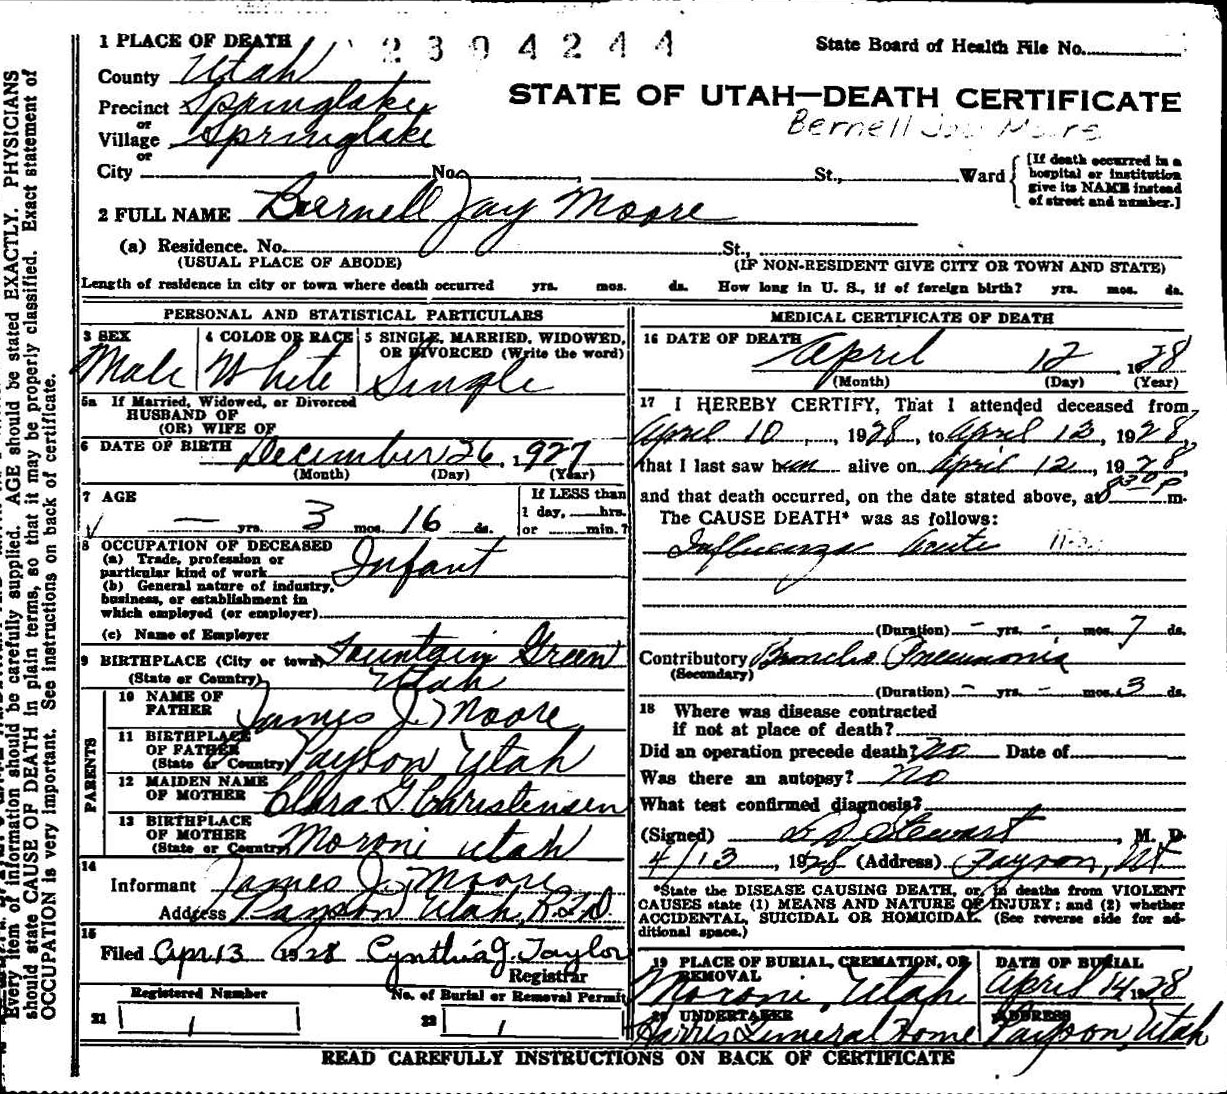 1 PLACE OF DEATH 2304244 State Board of Health File No.
County Utah
Precinct Springlake
or
Village Springlake
or
STATE OF UTAH—DEATH CERTIFICATE
Bernell Jay Moore
City No. St., Ward
[If death occurred in a
hospital or institution
give its NAME instead
of street and number.]
2 FULL NAME Bernell Jay Moore
(a) Residence. No. St.,
(USUAL PLACE OF ABODE) (IF NON-RESIDENT GIVE CITY OR TOWN AND STATE)
Length of residence in city or town where death occurred yrs. mos. ds. How long in U. S., if of foreign birth? yrs. mos. ds.
PERSONAL AND STATISTICAL PARTICULARS
3 SEX 4 COLOR OR RACE 5 SINGLE, MARRIED, WIDOWED,
OR DIVORCED (Write the word)
Male White Single
5a If Married, Widowed, or Divorced
HUSBAND OF
(OR) WIFE OF
6 DATE OF BIRTH December 26, 1927
(Month) (Day) (Year)
7 AGE If LESS than
1 day, hrs.
— yrs. 3 mos. 16 ds. or min.?
8 OCCUPATION OF DECEASED
(a) Trade, profession or
particular kind of work Infant
(b) General nature of industry,
business, or establishment in
which employed (or employer)
(c) Name of Employer
9 BIRTHPLACE (City or town) Fountain Green
(State or Country) Utah
PARENTS
10 NAME OF
FATHER James J. Moore
11 BIRTHPLACE
OF FATHER
(State or Country) Payson Utah
12 MAIDEN NAME
OF MOTHER Clara G. Christensen
13 BIRTHPLACE
OF MOTHER
(State or Country) Moroni Utah
14
Informant James J. Moore
Address Payson Utah, R.F.D
15
Filed Apr 13 1928 Cynthia J. Taylor
Registrar
Registered Number No. of Burial or Removal Permit
21 1 22 1
MEDICAL CERTIFICATE OF DEATH
16 DATE OF DEATH
April 12, 1928
(Month) (Day) (Year)
17 I HEREBY CERTIFY, That I attended deceased from
April 10, 1928, to April 12, 1928,
that I last saw him alive on April 12, 1928,
and that death occurred, on the date stated above, at 8 30 P m.
The CAUSE DEATH* was as follows:
Influenza Acute
(Duration) - yrs. - mos. 7 ds.
Contributory Broncho Pneumonia
(Secondary)
(Duration) - yrs. - mos. 3 ds.
18 Where was disease contracted
if not at place of death?
Did an operation precede death? No Date of
Was there an autopsy? No
What test confirmed diagnosis?
(Signed) Stewart, M. D.
4/13, 1928 (Address) Payson, Ut
*State the DISEASE CAUSING DEATH, or, in deaths from VIOLENT
CAUSES state (1) MEANS AND NATURE OF INJURY; and (2) whether
ACCIDENTAL, SUICIDAL OR HOMICIDAL. (See reverse side for ad-
ditional space.)
19 PLACE OF BURIAL, CREMATION, OR
REMOVAL
Moroni, Utah
DATE OF BURIAL
April 14 1928
20 UNDERTAKER
Harris Funeral Home
ADDRESS
Payson, Utah
READ CAREFULLY INSTRUCTIONS ON BACK OF CERTIFICATE
Every item of information should be carefully supplied. AGE should be stated EXACTLY. PHYSICIANS
should state CAUSE OF DEATH in plain terms, so that it may be properly classified. Exact statement of
OCCUPATION is very important. See instructions on back of certificate.